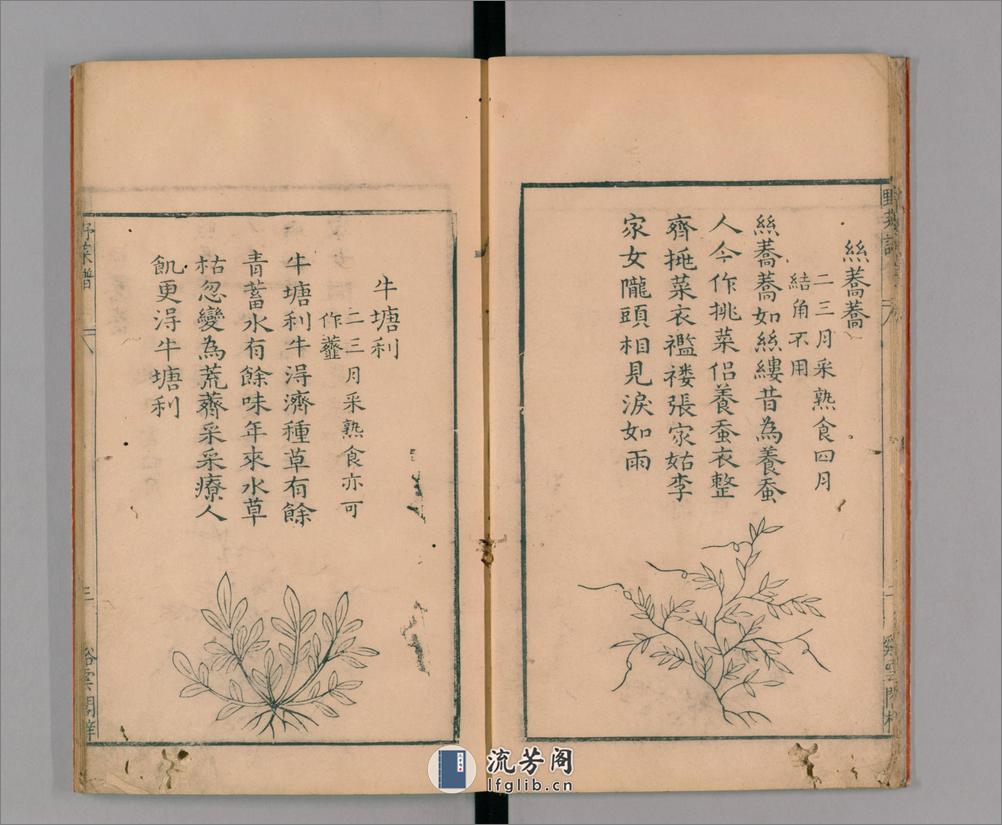 絲蕎蕎
二三月采熟食四月
結角不用
絲蕎蕎如絲縷昔為養蚕
人今作挑菜侶養蚕衣整
齊挑菜衣襤褸張家姑李
家女隴頭相見淚如雨
牛塘利
二三月采熟食亦可
作虀
牛塘利牛淂濟種草有餘
青蓄水有餘味年來水草
枯忽變為荒薺采采療人
飢更淂牛塘利
野菜譜
三
流芳阁
lfglib.cn